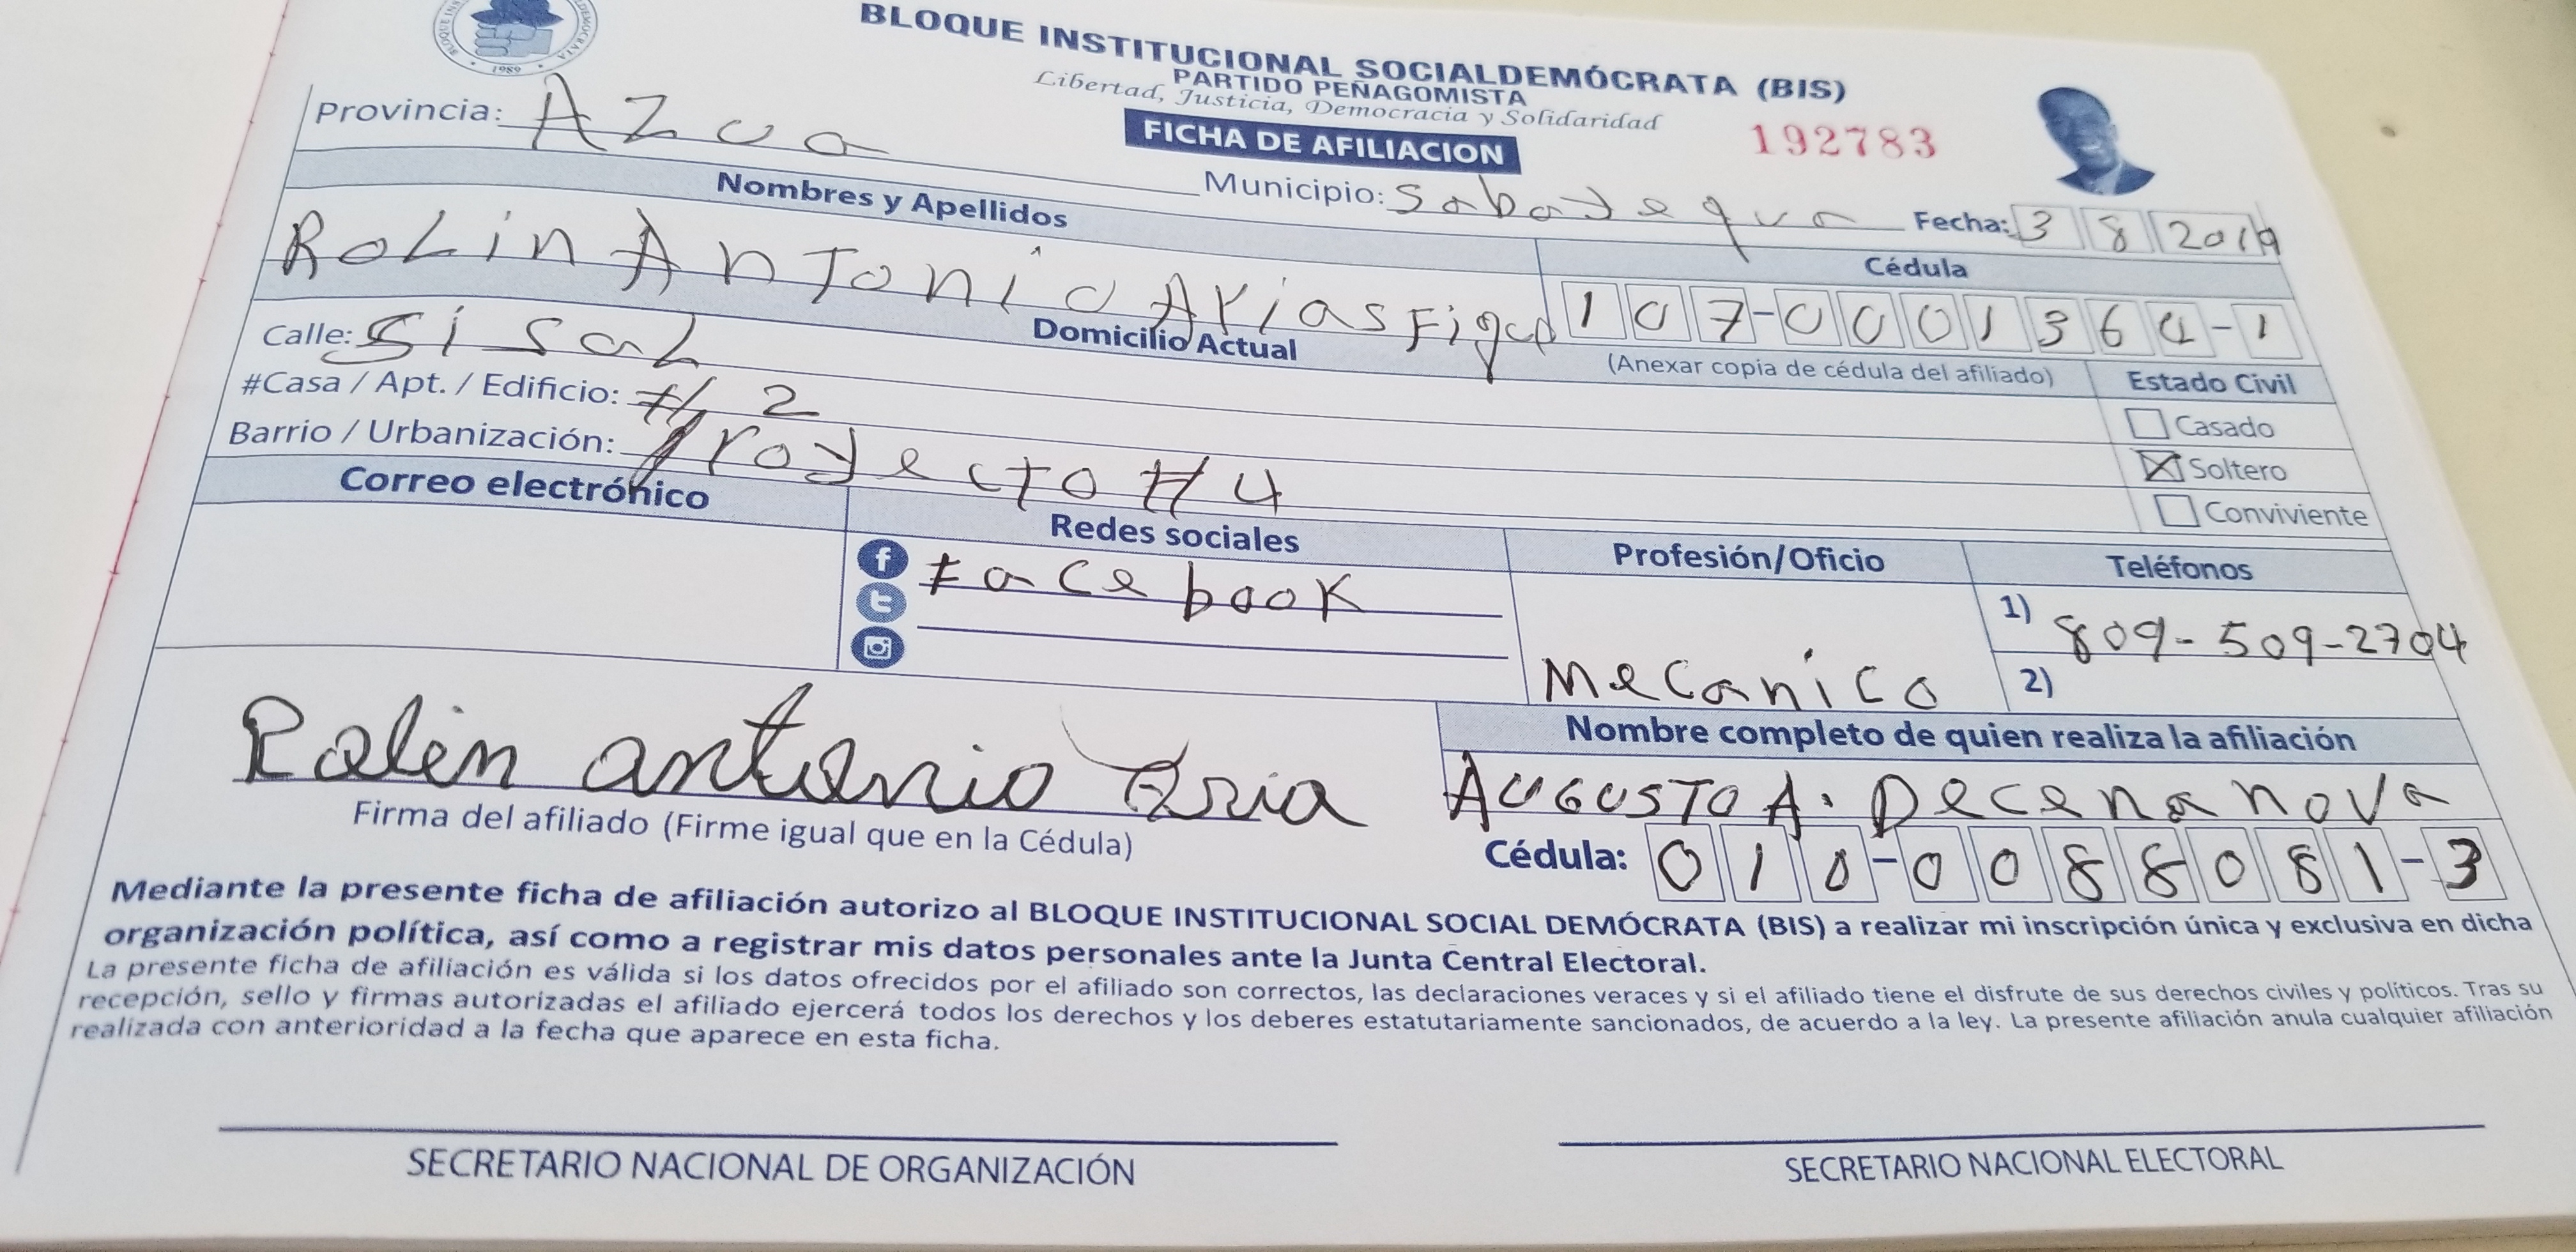 1989
BLOQUE INSTITUCIONAL SOCIALDEMÓCRATA (BIS)
PARTIDO PEÑAGOMISTA
Libertad, Justicia, Democracia y Solidaridad
FICHA DE AFILIACION
192783
Provincia: Azua
Municipio: Sabayegua
Fecha: 3 8 2019
Nombres y Apellidos
Cédula
Rolin Antonio Arias
107-0001364-1
Domicilio Actual
(Anexar copia de cédula del afiliado)
Estado Civil
Calle: Sisal
#Casa / Apt. / Edificio: # 2
Barrio / Urbanización: Proyecto #4
Casado
Soltero
Conviviente
Correo electrónico
Redes sociales
Profesión/Oficio
Teléfonos
Facebook
Mecanico
1) 809-509-2704
2)
Rolin antonio Aria
Firma del afiliado (Firme igual que en la Cédula)
Nombre completo de quien realiza la afiliación
AUGUSTO A. Decena nova
Cédula: 010-0088081-3
Mediante la presente ficha de afiliación autorizo al BLOQUE INSTITUCIONAL SOCIAL DEMÓCRATA (BIS) a realizar mi inscripción única y exclusiva en dicha
organización política, así como a registrar mis datos personales ante la Junta Central Electoral.
La presente ficha de afiliación es válida si los datos ofrecidos por el afiliado son correctos, las declaraciones veraces y si el afiliado tiene el disfrute de sus derechos civiles y políticos. Tras su
recepción, sello y firmas autorizadas el afiliado ejercerá todos los derechos y los deberes estatutariamente sancionados, de acuerdo a la ley. La presente afiliación anula cualquier afiliación
realizada con anterioridad a la fecha que aparece en esta ficha.
SECRETARIO NACIONAL DE ORGANIZACIÓN
SECRETARIO NACIONAL ELECTORAL